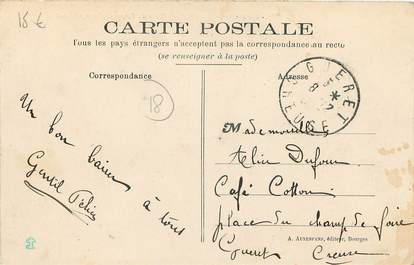 15 €
CARTE POSTALE
Tous les pays étrangers n'acceptent pas la correspondance au recto
(se renseigner à la poste)
Correspondance
Adresse
GUERET
CREUSE
18
Un bon baiser
à tous
Gentil
Mademoiselle
Alice Dufour
Café Cotton
place du champ de foire
Gueret Creuse
A. AUXENFANS, éditeur, Bourges